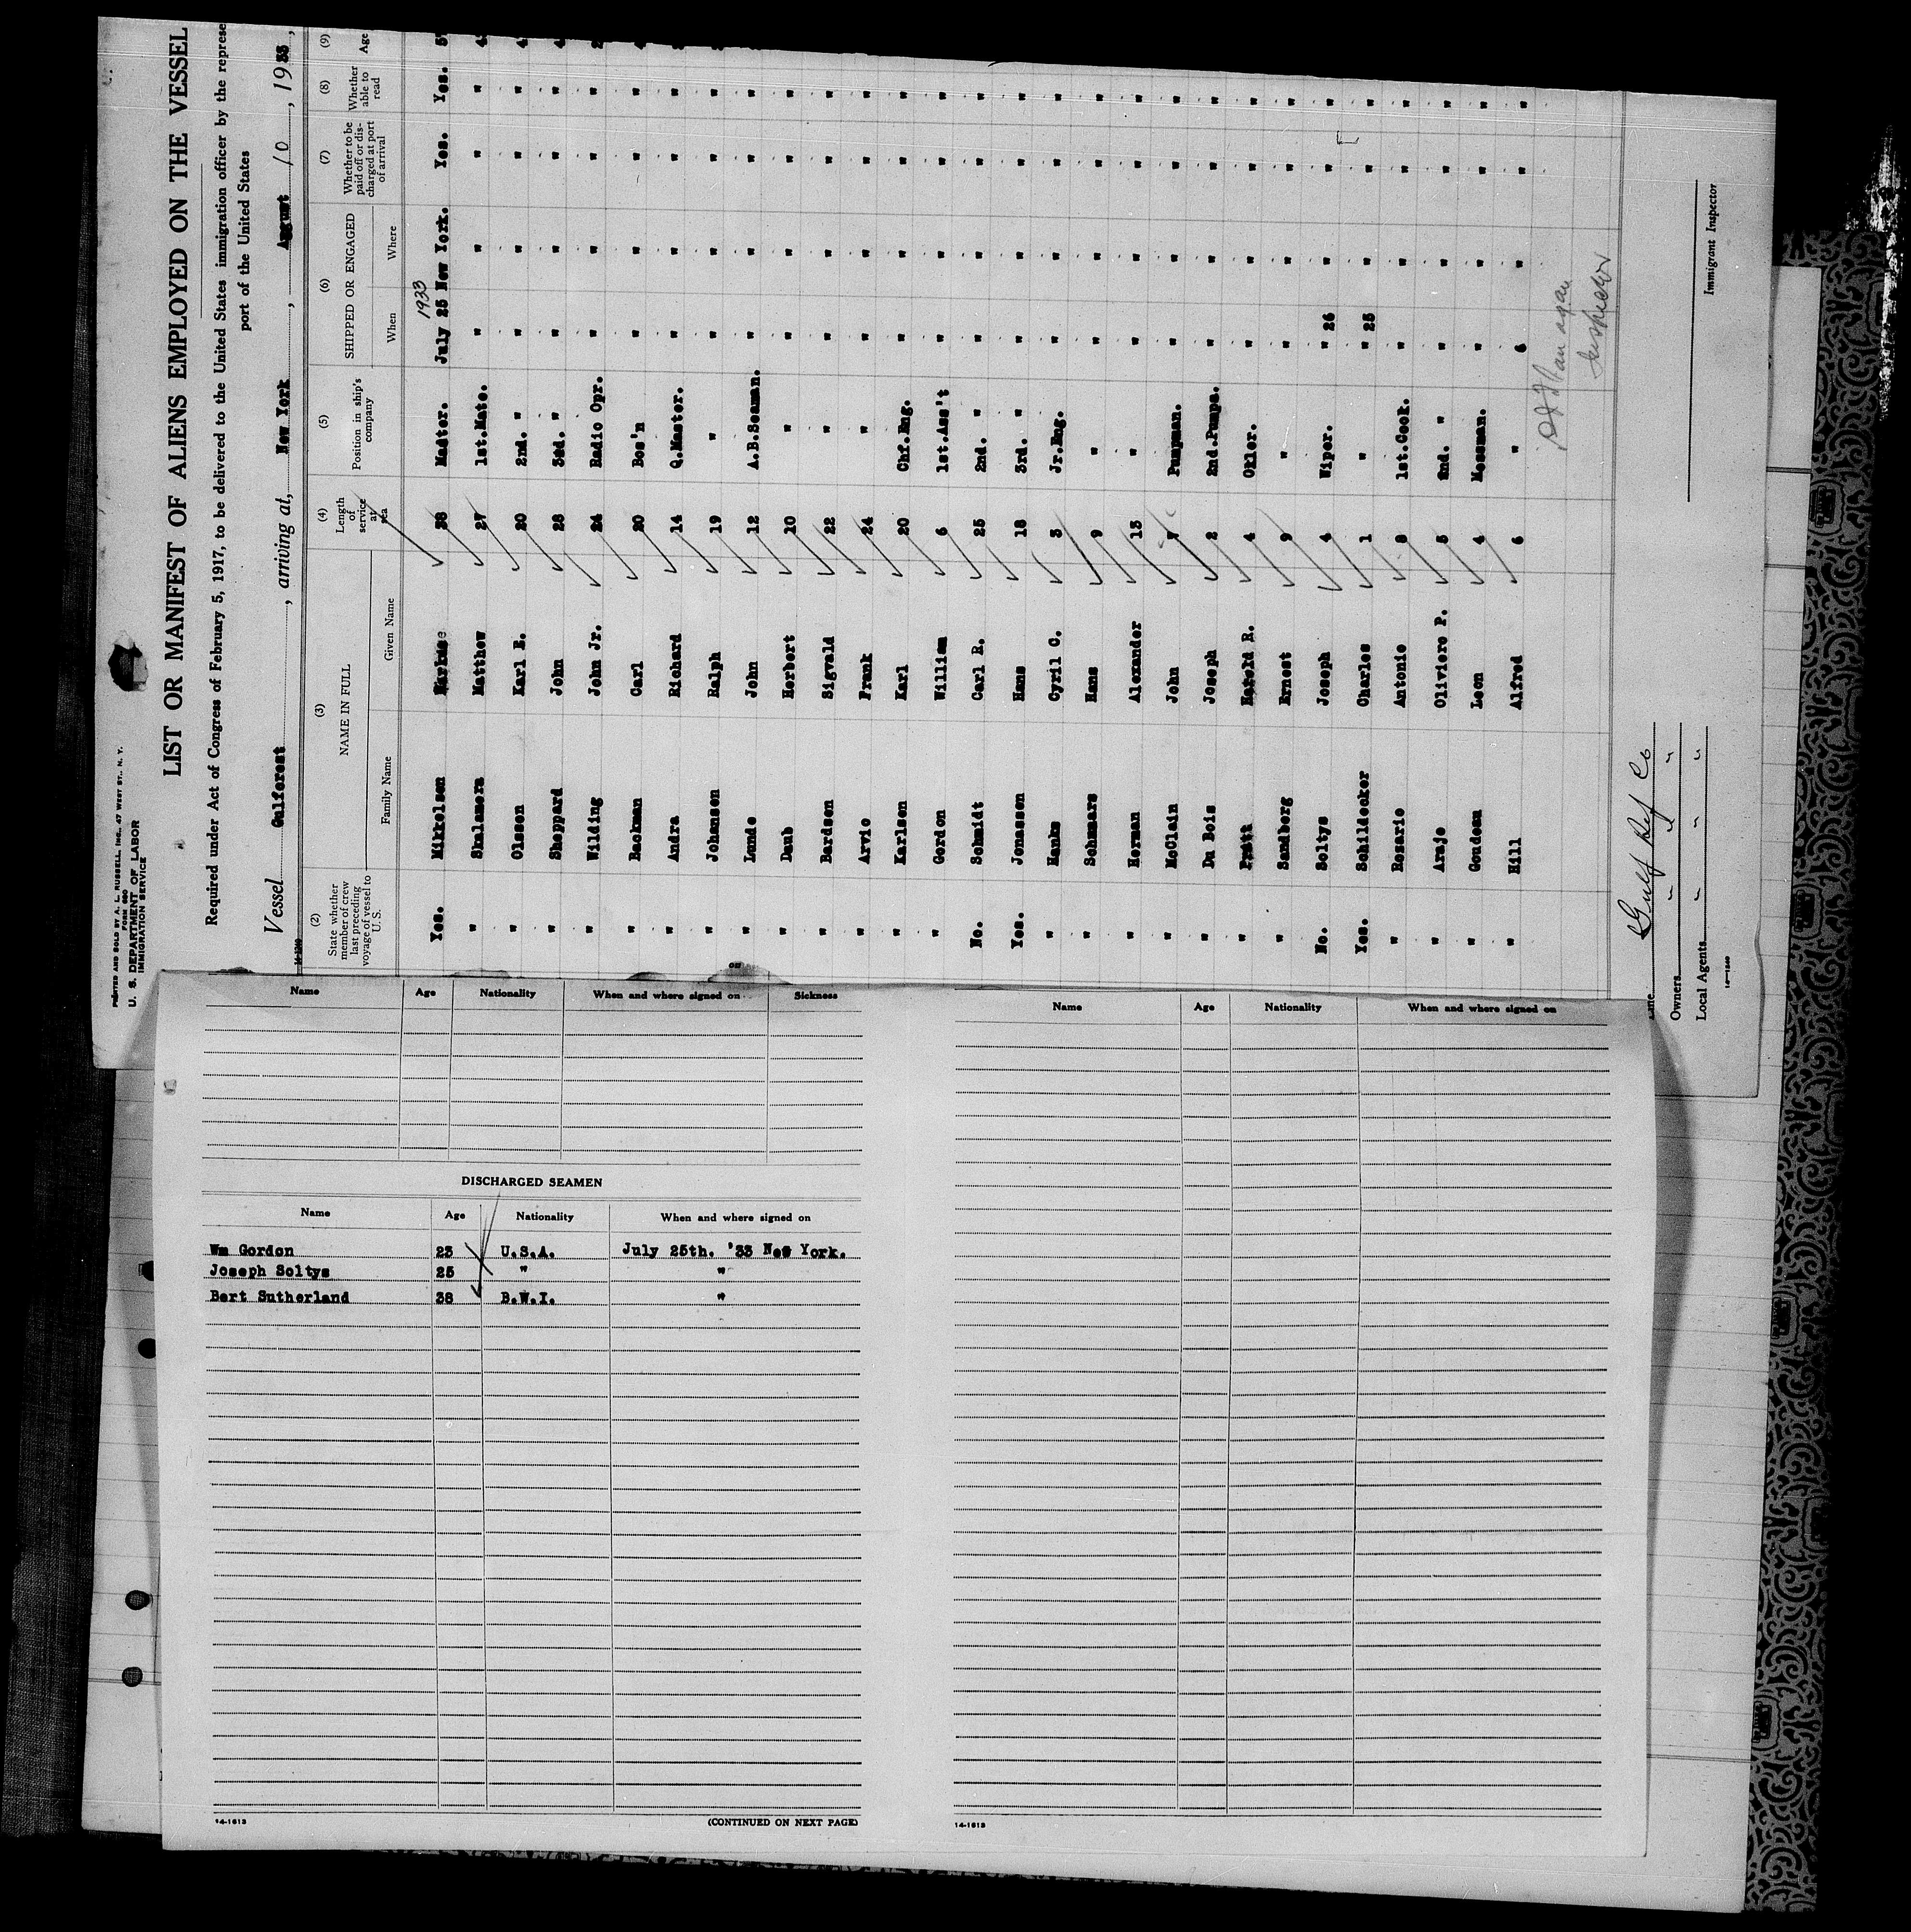 PRINTED AND SOLD BY A. L. RUSSELL, INC., 47 WEST ST., N. Y.
FORM 680
U. S. DEPARTMENT OF LABOR
IMMIGRATION SERVICE
LIST OR MANIFEST OF ALIENS EMPLOYED ON THE VESSEL
Required under Act of Congress of February 5, 1917, to be delivered to the United States immigration officer by the represe
port of the United States
Vessel Gulfcrest, arriving at, New York, August 10, 1933,
(2) (3) (4) (5) (6) (7) (8) (9)
State whether member of crew last preceding voyage of vessel to U. S. NAME IN FULL Length of service at sea Position in ship's company SHIPPED OR ENGAGED Whether to be paid off or discharged at port of arrival Whether able to read Age
Family Name Given Name When Where
1933
Yes. Mikkelsen 28 Master. July 25 New York. Yes. Yes.
" Skalamera Matthew 27 1st.Mate. " " " "
" Olsson Karl E. 20 2nd. " " " " "
" Sheppard John 28 3rd. " " " " "
" Wilding John Jr. 24 Radio Opr. " " " "
" Backman Carl 20 Bos'n " " " "
" Andra Richard 14 Q.Master. " " " "
" Johansen Ralph 19 " " " " "
" Lunde John 12 A.B.Seaman. " " " "
" Daub Herbert 10 " " " " "
" Bardsen Sigvald 22 " " " " "
" Arvio Frank 24 " " " " "
" Karlsen Karl 20 Chf.Eng. " " " "
" Gordon William 6 1st.Ass't " " " "
No. Schmidt Carl R. 25 2nd. " " " " "
Yes. Jonassen Hans 18 3rd. " " " " "
" Hanks Cyril C. 3 Jr.Eng. " " " "
" Schmars Hans 9 " " " " "
" Herman Alexander 13 " " " " "
" McClain John 7 Pumpman. " " " "
" Du Bois Joseph 2 2nd.Pumps. " " " "
" Pratt Harold R. 4 Oiler. " " " "
" Sandberg Ernest 9 " " " " "
No. Soltys Joseph 4 Wiper. " 26 " " "
Yes. Schildecker Charles 1 " " 25 " " "
" Rosario Antonio 8 1st.Cook. " " " "
" Araje Oliviero P. 5 2nd. " " " " "
" Goudeau Leon 4 Messman. " " " "
" Hill Alfred 6 " " " "
Inspector
Gulf Ref Co
Owners " " "
Local Agents " " "
Immigrant Inspector
14-1240
Name Age Nationality When and where signed on Sickness
DISCHARGED SEAMEN
Name Age Nationality When and where signed on
Wm Gordon 23 U.S.A. July 25th. '33 New York.
Joseph Soltys 25 " "
Bert Sutherland 38 B.W.I. "
14-1613
(CONTINUED ON NEXT PAGE)
Name Age Nationality When and where signed on
14-1613